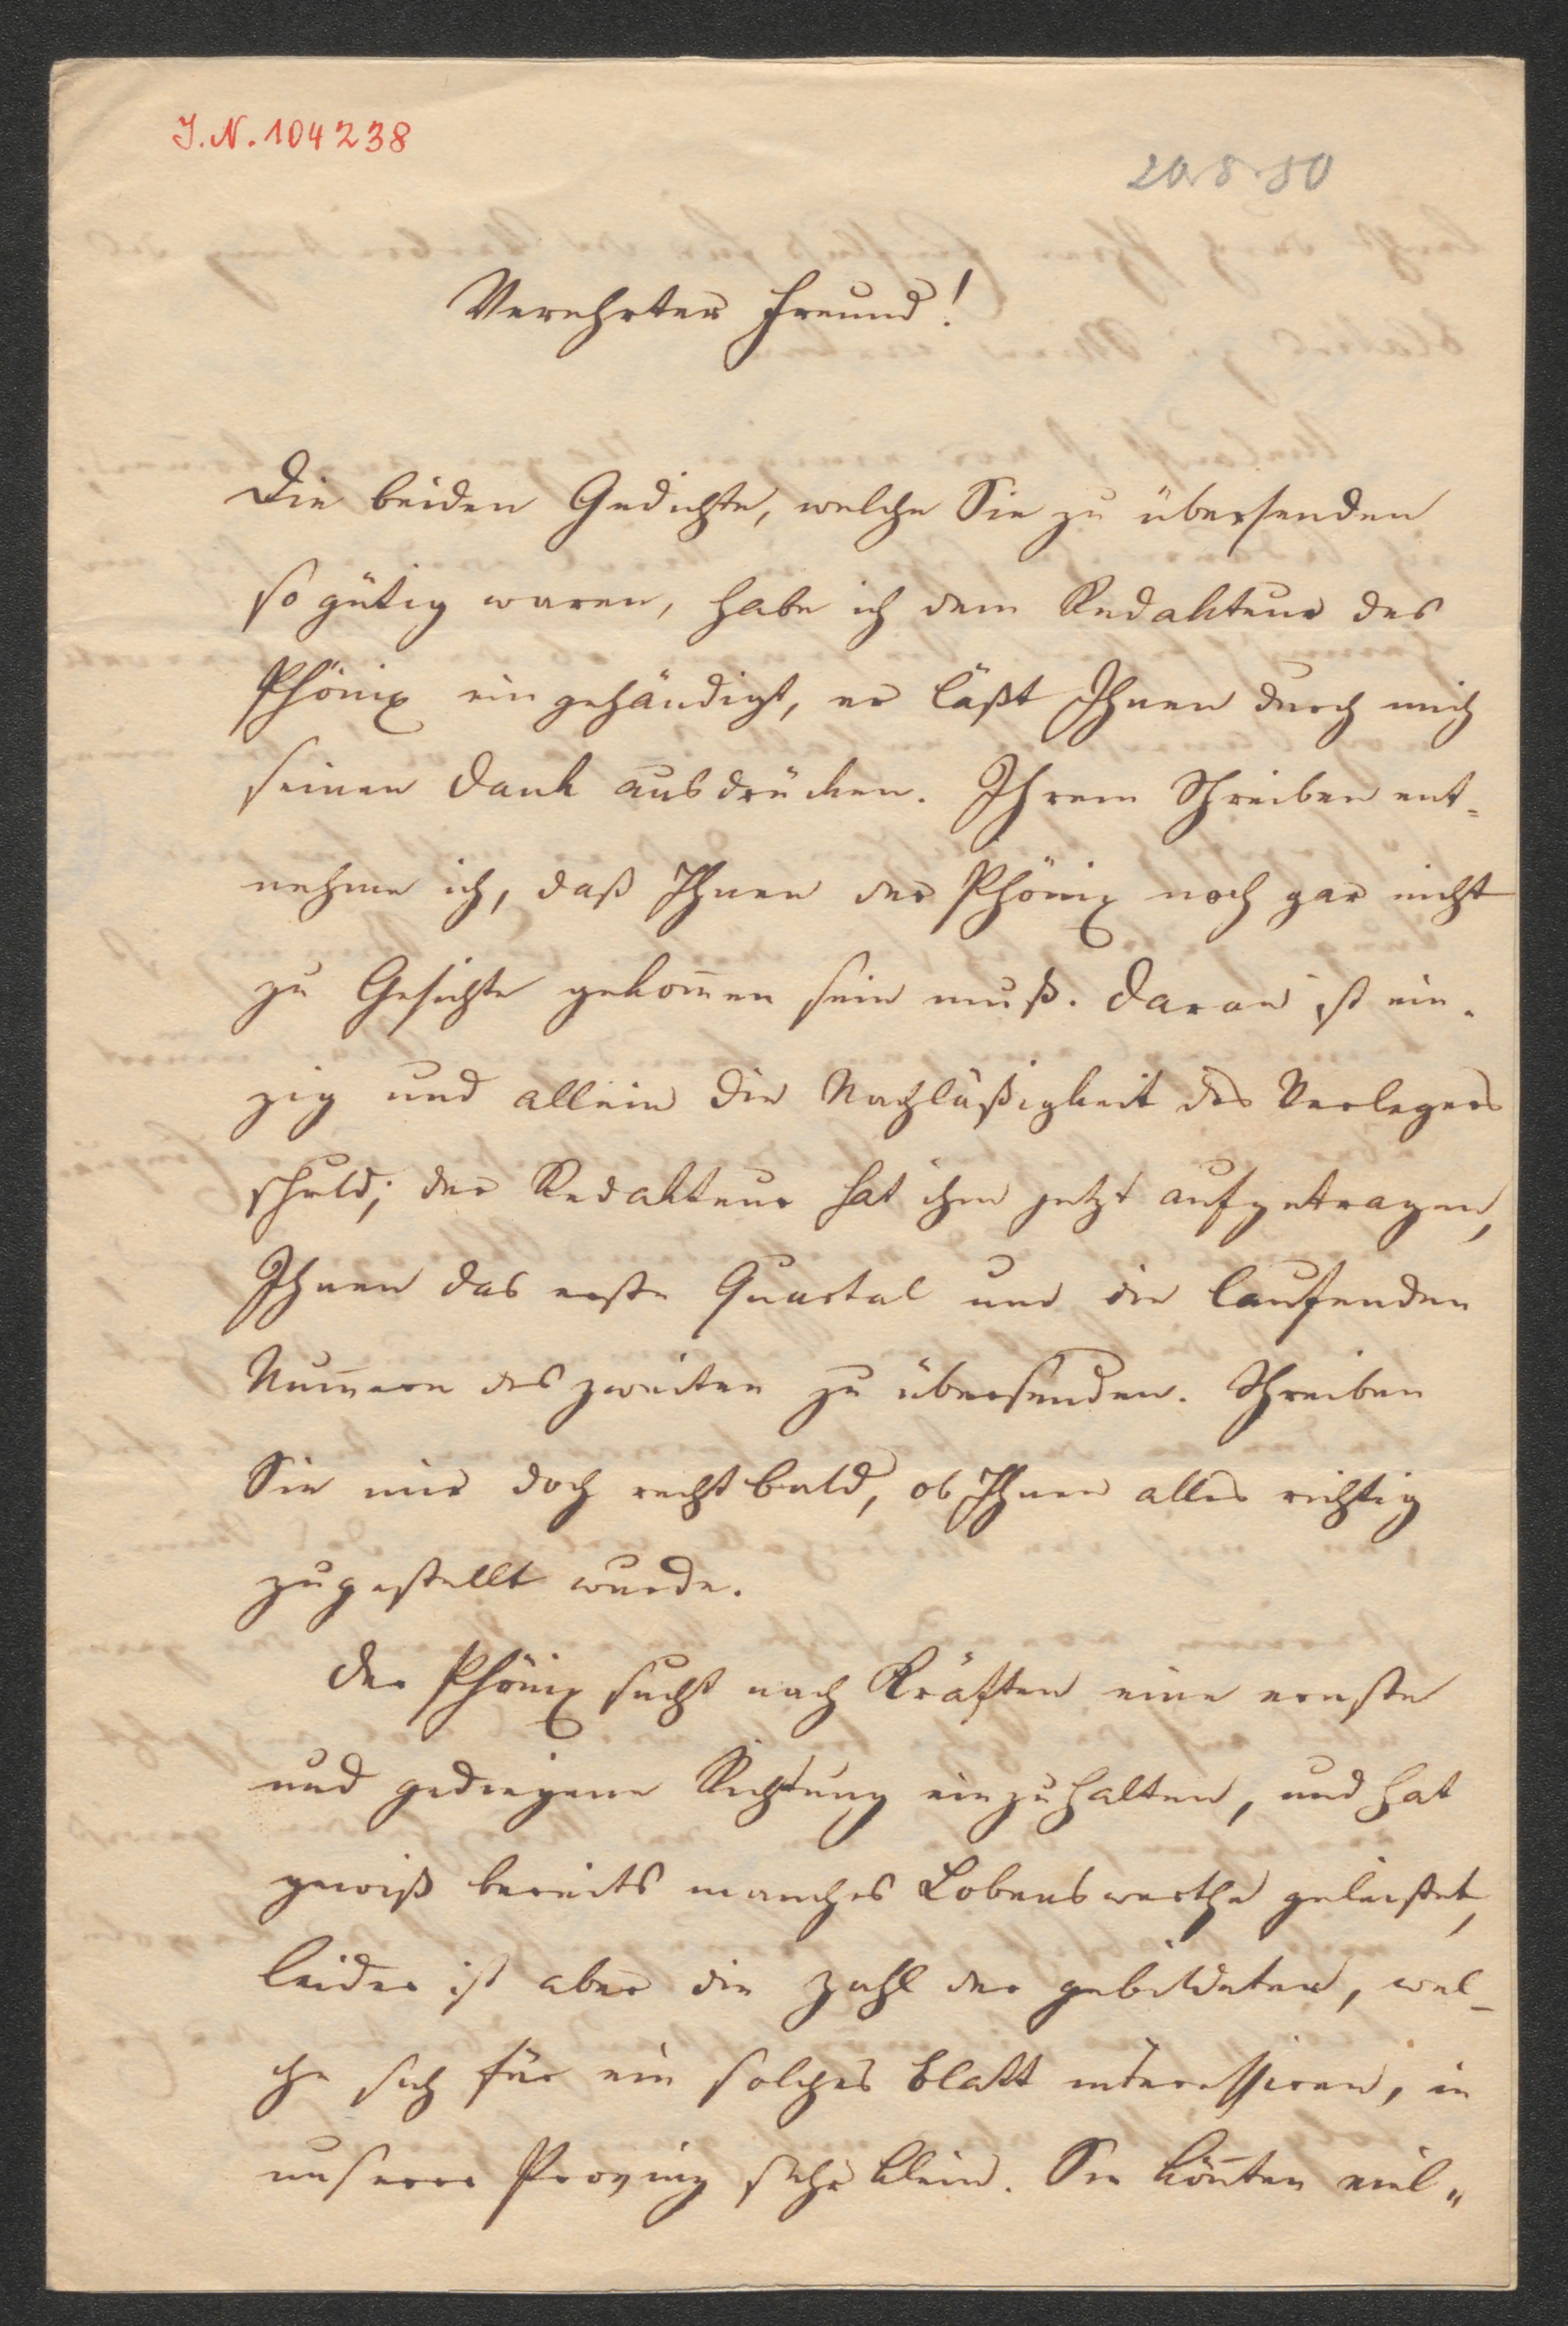 J. N. 104238
20.8.50
Verehrter Freund!
Die beiden Gedichte, welche Sie zu übersenden
so gütig waren, habe ich dem Redakteur des
Phönix eingehändigt, er läßt Ihnen durch mich
seinen Dank ausdrücken. Ihrem Schreiben ent=
nehme ich, daß Ihnen der Phönix noch gar nicht
zu Gesichte gekom̅en sein muß. Daran ist ein-
zig und allein die Nachläßigkeit des Verlegers
schuld; der Redakteur hat ihm jetzt aufgetragen,
Ihnen das erste Quartal und die laufenden
Num̅ern des zweiten zu übersenden. Schreiben
Sie mir doch recht bald, ob Ihnen alles richtig
zugestellt wurde.
Der Phönix sucht nach Kräften eine ernste
und gediegene Richtung einzuhalten, und hat
gewiß bereits manches Lobenswerthe geleistet,
leider ist aber die Zahl der gebildeten, wel-
che sich für ein solches Blatt interessiren, in
unserer Provinz sehr klein. Sie kön̅ten viel„